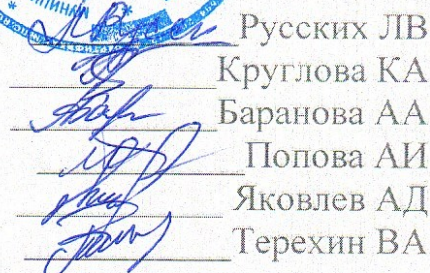 Русских ЛВ
Круглова КА
Баранова АА
Попова АИ
Яковлев АД
Терехин ВА